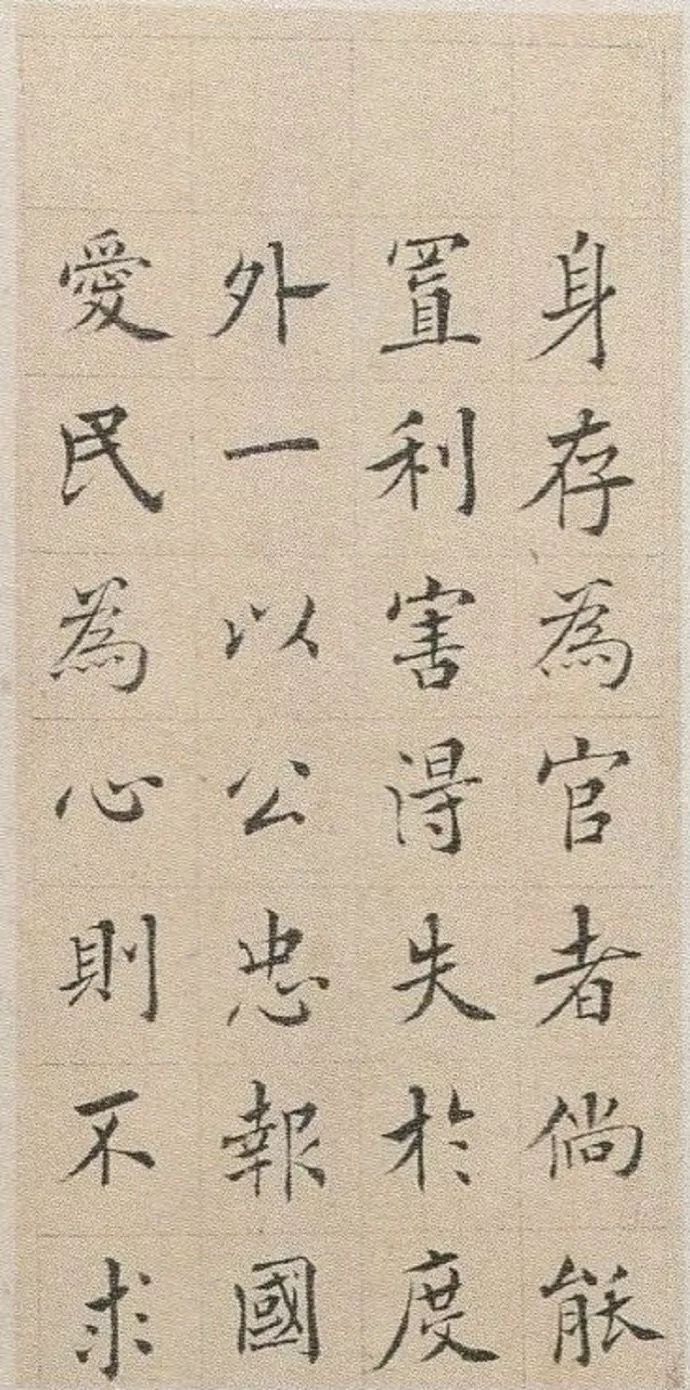 身存為官者倘能
置利害得失於度
外一以公忠報國
愛民為心則不求